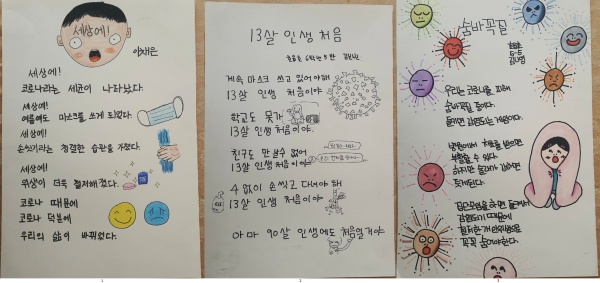 세상에!
이채은
세상에!
코로나라는 세균이 나타났다.
세상에!
여름에도 마스크를 쓰게 되었다.
세상에!
손씻기라는 청결한 습관을 가졌다.
세상에!
위생이 더욱 철저해졌다.
코로나 때문에
코로나 덕분에
우리의 삶이 바뀌었다.
13살 인생 처음
계속 마스크 쓰고 있어야해
13살 인생 처음이야
학교도 못가
13살 인생 처음이야.
친구도 만날수 없어
13살 인생 처음이야
수없이 손씻고 다녀야 해
13살 인생 처음이야
아마 90살 인생에도 처음일거야
숨바꼭질
5-5
우리는 코로나를 피해
숨바꼭질 중이다.
들키면 감염되는 게임이다.
병원에서 치료를 받으면
부활할 수 있다.
하지만 술래가 강하면
죽게된다.
집단모임을 하면 들켜서
감염되기 때문에
꼭꼭 숨어야한다.
1
2
3